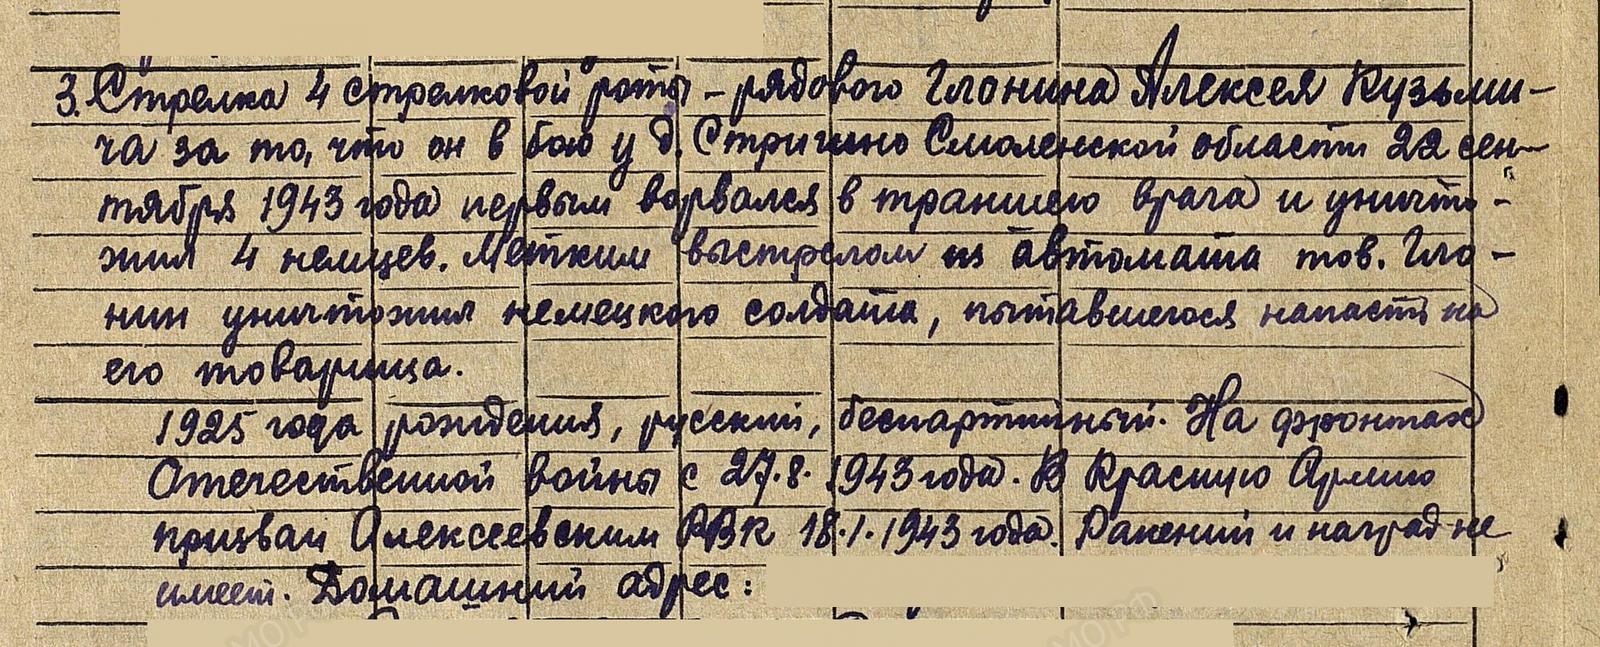 3. Стрелка 4 стрелковой роты – рядового Глонина Алексея Кузьми-
ча за то, что он в бою у д. Стригино Смоленской области 22 сен-
тября 1943 года первым ворвался в траншею врага и уничто-
жил 4 немцев. Метким выстрелом из автомата тов. Гло-
нин уничтожил немецкого солдата, пытавшегося напасть на
его товарища.
1925 года рождения, русский, беспартийный. На фронтах
Отечественной войны с 27.8.1943 года. В Красную Армию
призван Алексеевским РВК 18.1.1943 года. Ранений и наград не
имеет. Домашний адрес: